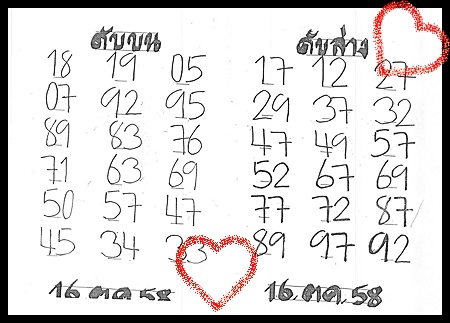 ดับบน
18 19 05
07 92 95
89 83 76
71 63 69
50 57 47
45 34 33
16 ตค 58
ดับล่าง
17 12 27
29 37 32
47 49 57
52 67 69
77 72 87
89 97 92
16.ตค.58